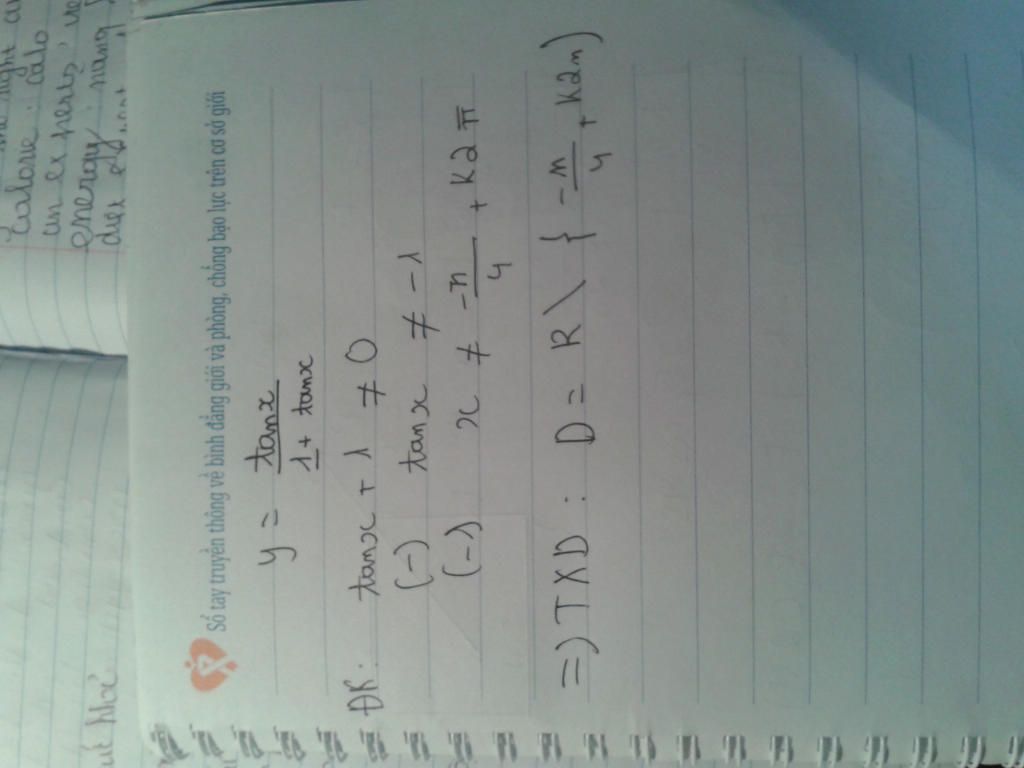 Sổ tay truyền thông về bình đẳng giới và phòng, chống bạo lực trên cơ sở giới
y = tanx / 1 + tanx
ĐK: tanx + 1 ≠ 0
(-) tanx ≠ -1
(-) x ≠ -π/4 + k2π
=) TXD: D = R \ { -π/4 + k2π )
calose: calo
an experts
energy: năng
diet